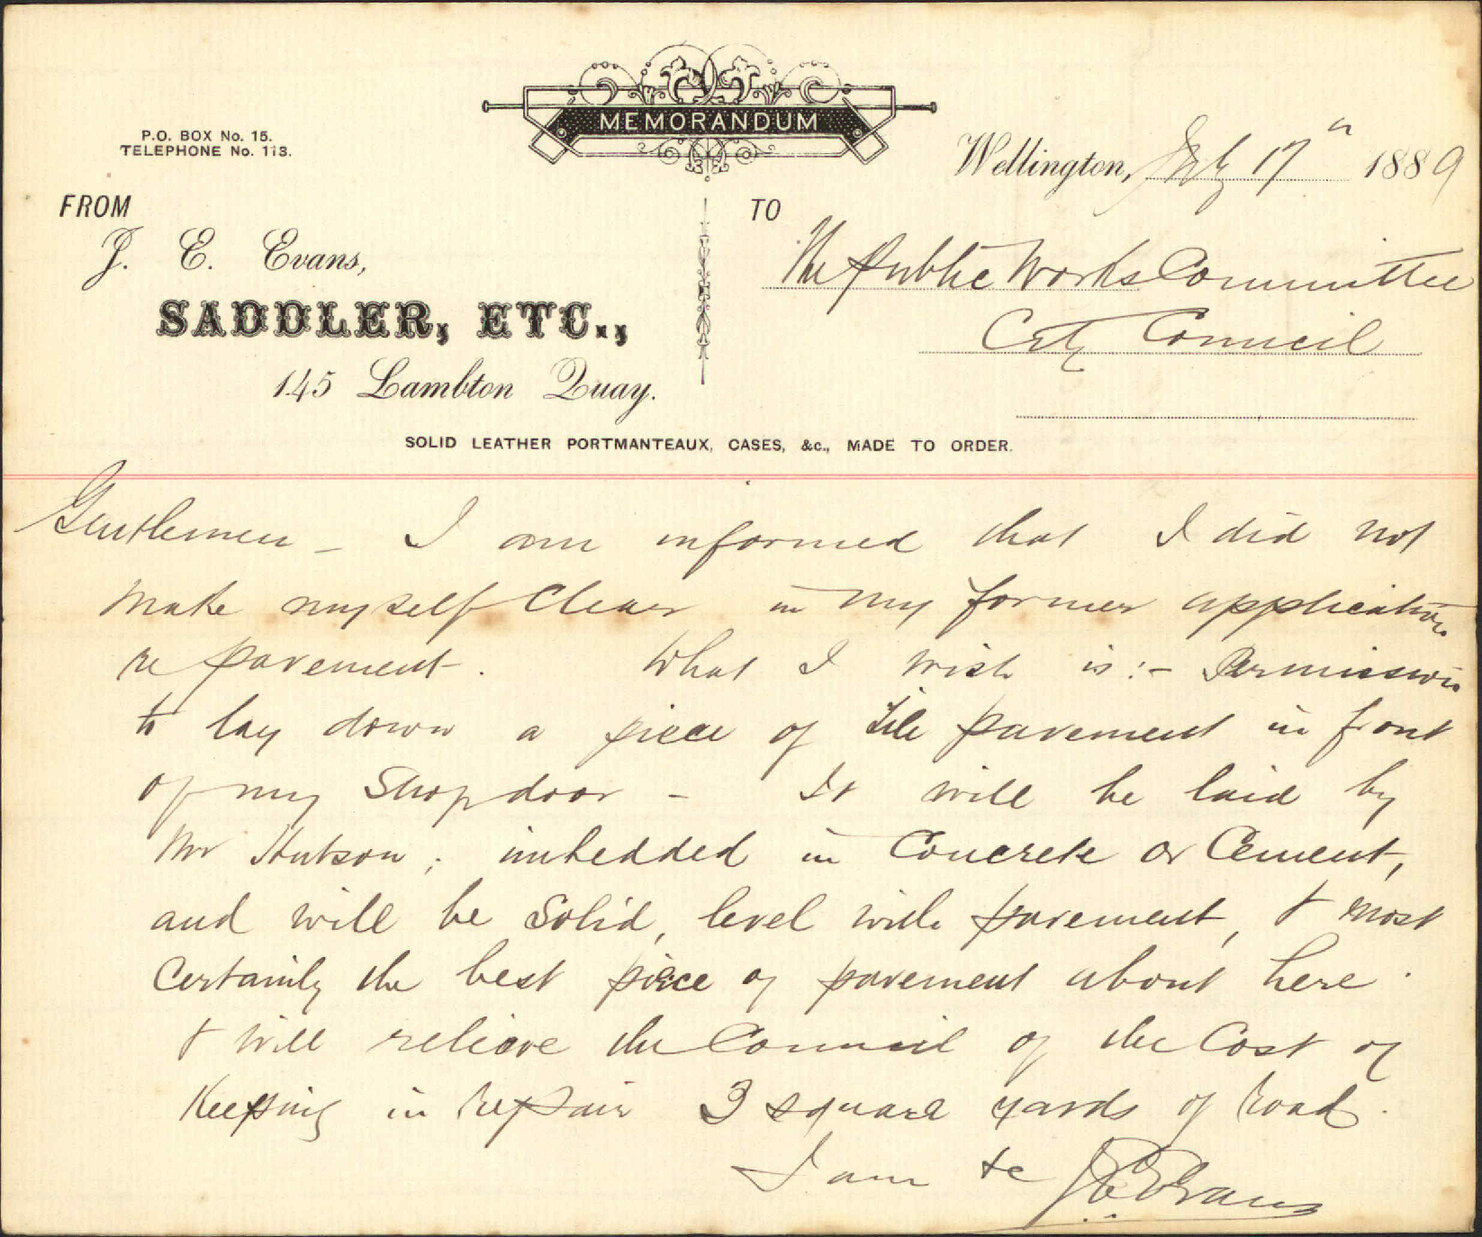 MEMORANDUM
P.O. BOX No. 15.
TELEPHONE No. 113.
Wellington, July 17th 1889
FROM
J. E. Evans,
SADDLER, ETC.,
145 Lambton Quay.
TO
The Public Works Committee
City Council
SOLID LEATHER PORTMANTEAUX, CASES, &c., MADE TO ORDER.
Gentlemen - I am informed that I did not
make myself clear in my former application
re pavement. What I wish is :- Permission
to lay down a piece of Tile pavement in front
of my Shop door - It will be laid by
Mr Hutson ; imbedded in Concrete or Cement,
and will be Solid, level with pavement, & most
Certainly the best piece of pavement about here.
& will relieve the Council of the Cost of
Keeping in repair 3 square yards of road.
I am &c J E Evans